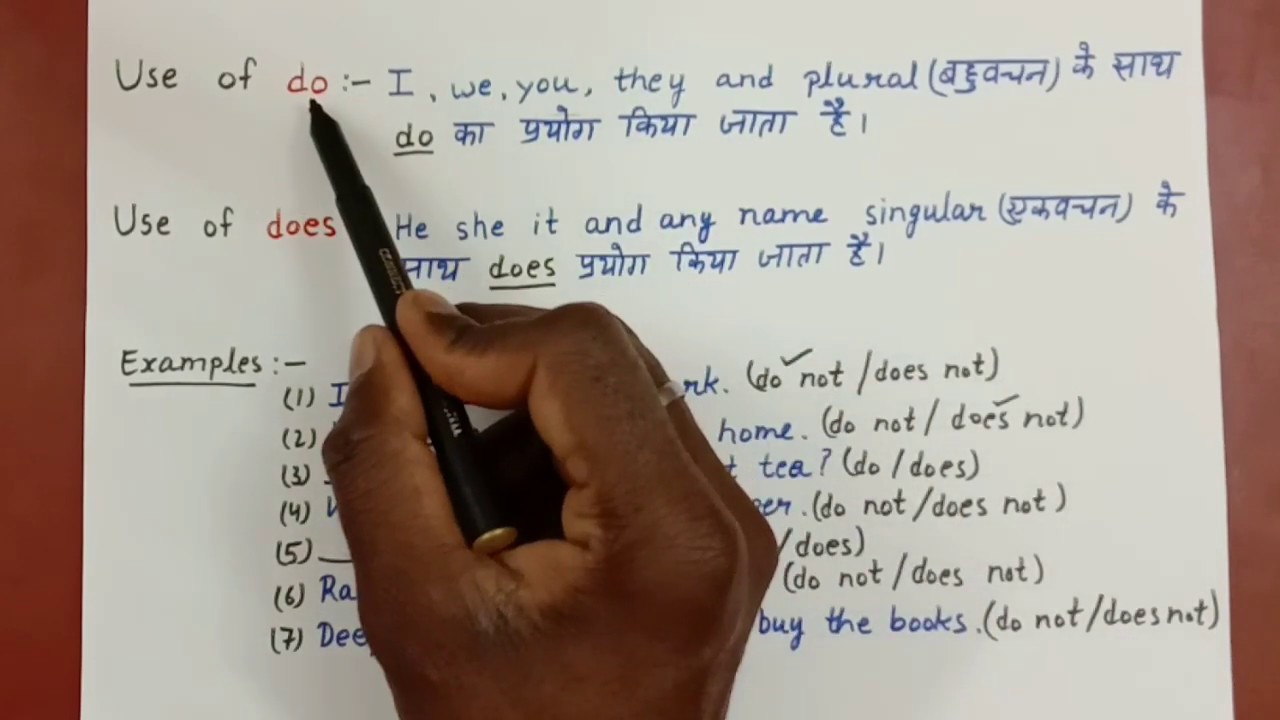 Use of do :- I, we, you, they and plural (बहुवचन) के साथ
do का प्रयोग किया जाता है।
Use of does He she it and any name singular (एकवचन) के
साथ does प्रयोग किया जाता है।
Examples :-
(1) I rk. (do not / does not)
(2) home. (do not / does not)
(3) tea? (do / does)
(4) (do not / does not)
(5) / does)
(6) Ra (do not / does not)
(7) Dee buy the books. (do not / does not)